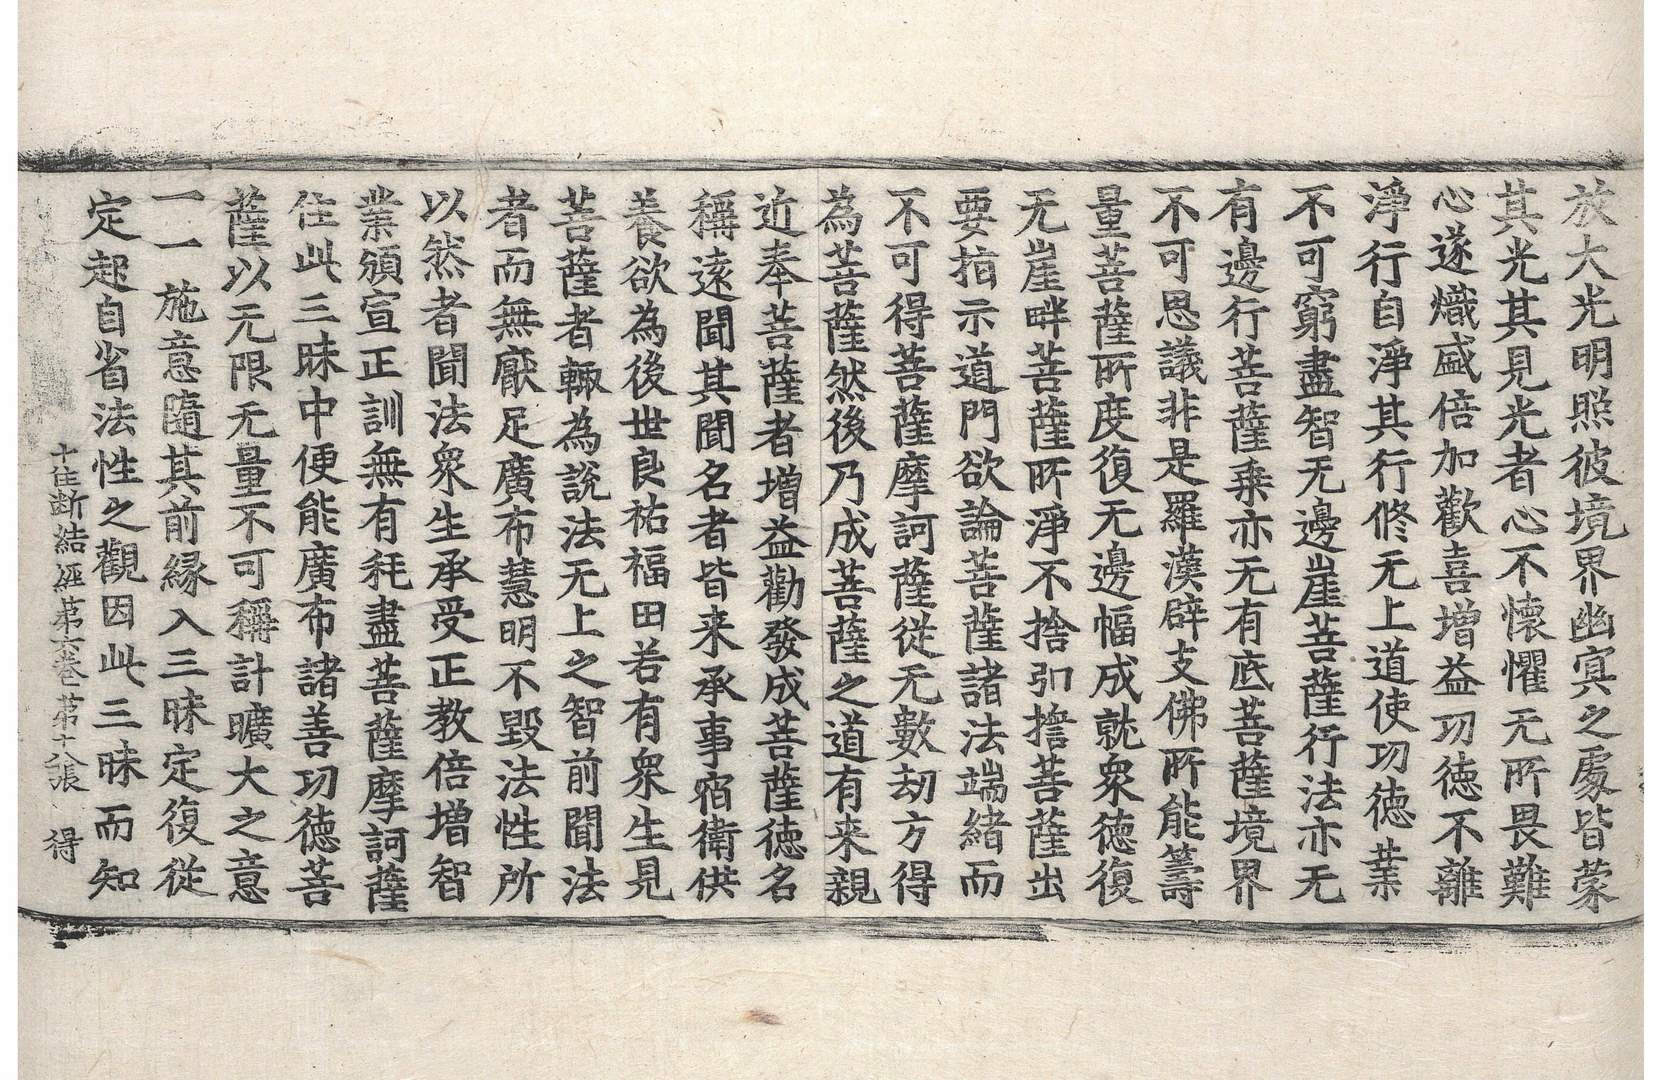 放大光明照彼境界幽冥之處皆蒙
其光其見光者心不懷懼无所畏難
心遂熾盛倍加歡喜增益功德不離
淨行自淨其行修无上道使功德業
不可窮盡智无邊崖菩薩行法亦无
有邊行菩薩乗亦无有底菩薩境界
不可思議非是羅漢辟支佛所能籌
量菩薩所度復无邊幅成就衆德復
无崖畔菩薩所淨不捨弘擔菩薩出
要指示道門欲論菩薩諸法端緒而
不可得菩薩摩訶薩從无數劫方得
為菩薩然後乃成菩薩之道有来親
近奉菩薩者增益勸發成菩薩德名
稱遠聞其聞名者皆来承事宿衛供
養欲為後世良祐福田若有衆生見
菩薩者輙為說法无上之智前聞法
者而無猒足廣布慧明不毀法性所
以然者聞法衆生承受正教倍增智
業頒宣正訓無有秏盡菩薩摩訶薩
住此三昧中便能廣布諸善功德菩
薩以无限无量不可稱計曠大之意
一一施意隨其前縁入三昧定復從
定起自省法性之觀因此三昧而知
十住断結經第六卷 第十八張 得